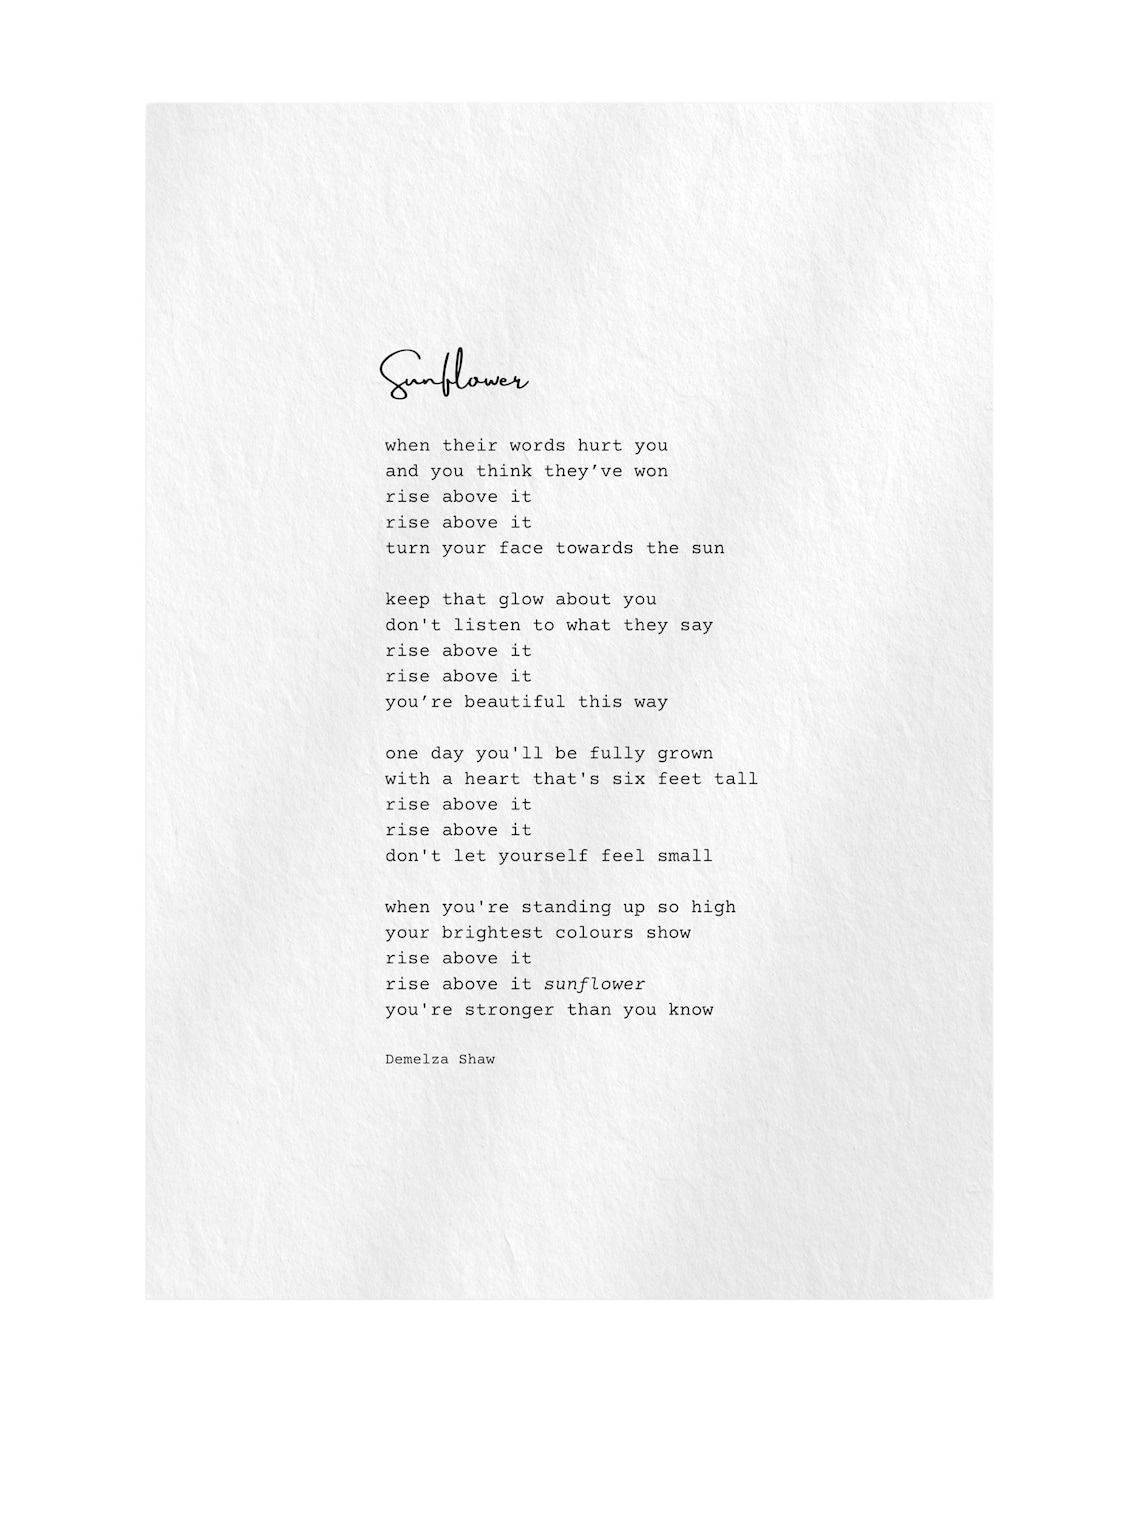 Sunflower
when their words hurt you
and you think they’ve won
rise above it
rise above it
turn your face towards the sun
keep that glow about you
don't listen to what they say
rise above it
rise above it
you’re beautiful this way
one day you'll be fully grown
with a heart that's six feet tall
rise above it
rise above it
don't let yourself feel small
when you're standing up so high
your brightest colours show
rise above it
rise above it sunflower
you're stronger than you know
Demelza Shaw